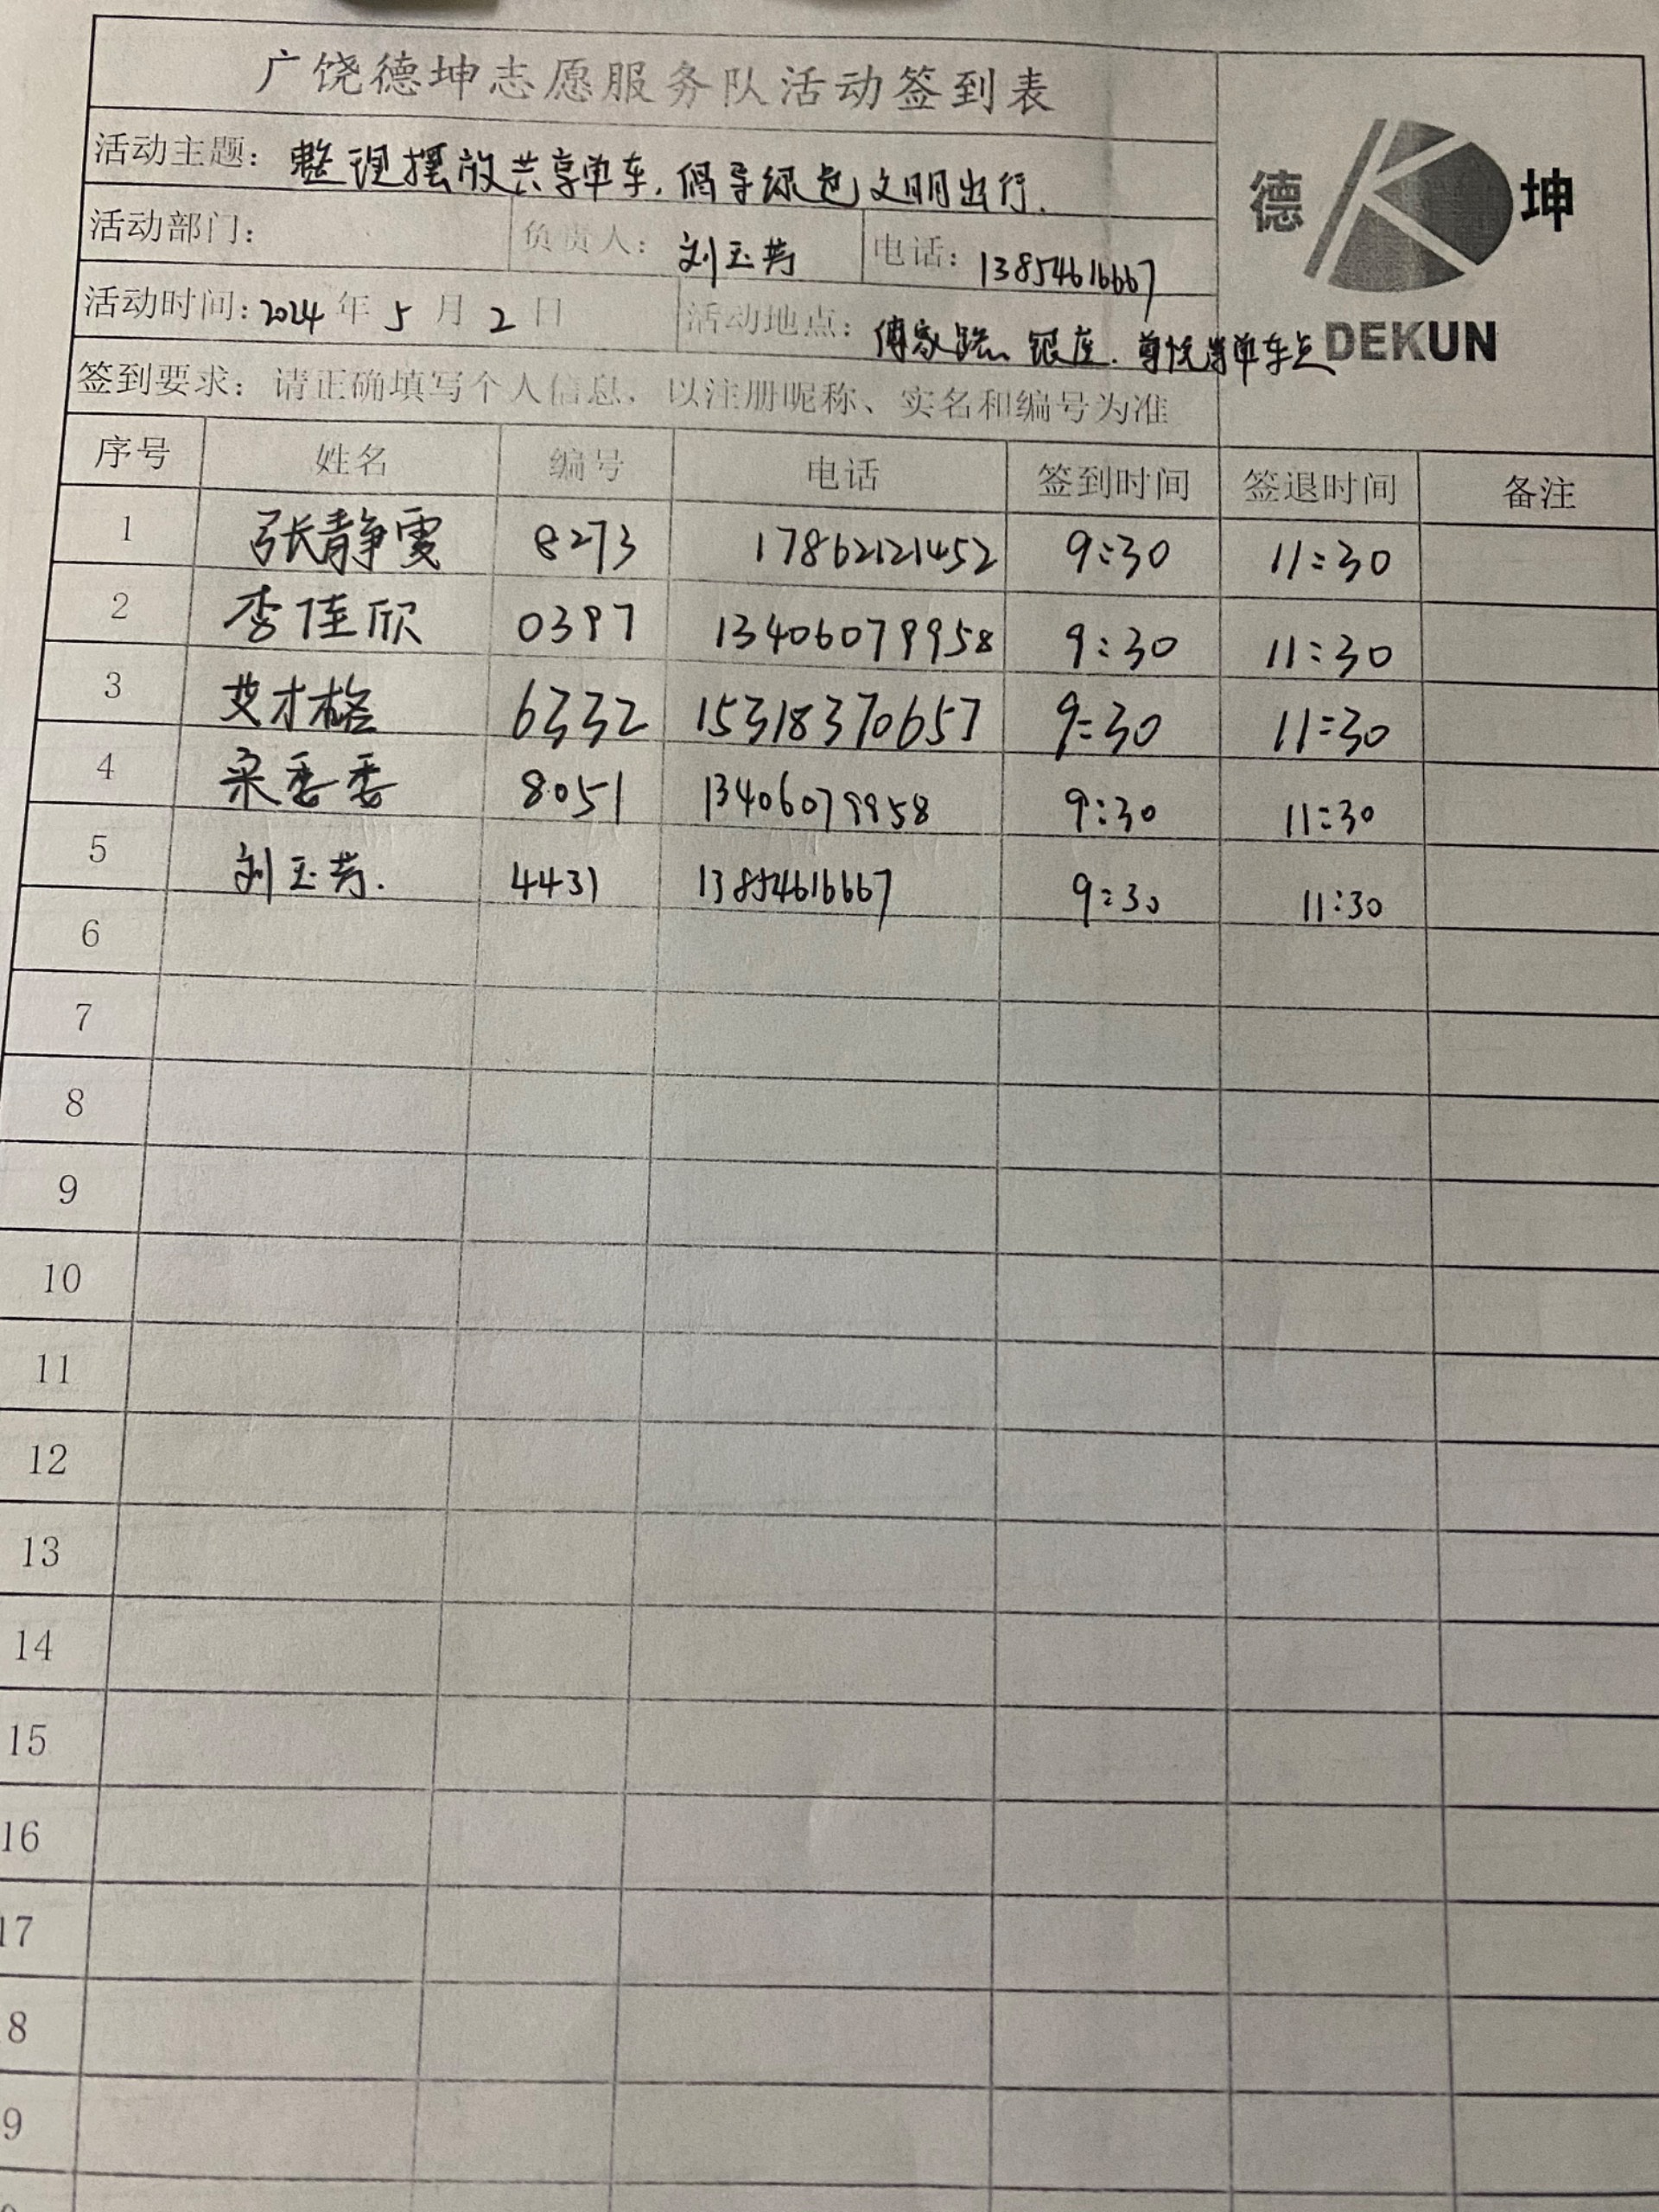 广饶德坤志愿服务队活动签到表
活动主题：整理摆放共享单车，倡导绿色文明出行.
德 坤
活动部门： 负责人：刘玉芳 电话：13854616667
活动时间：2024年5月2日 活动地点：傅家路、银座.单车点
DEKUN
签到要求：请正确填写个人信息，以注册昵称、实名和编号为准
序号 姓名 编号 电话 签到时间 签退时间 备注
1 张静雯 8273 17862121452 9:30 11:30
2 李佳欣 0397 13406079958 9:30 11:30
3 艾才格 6332 15318370657 9:30 11:30
4 宋委委 8051 13406079958 9:30 11:30
5 刘玉芳. 4431 13854616667 9:30 11:30
6
7
8
9
10
11
12
13
14
15
16
17
8
9